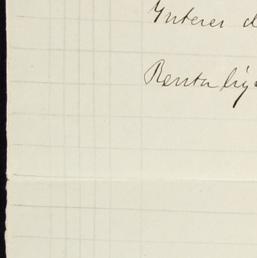 Interes d
Renta líq